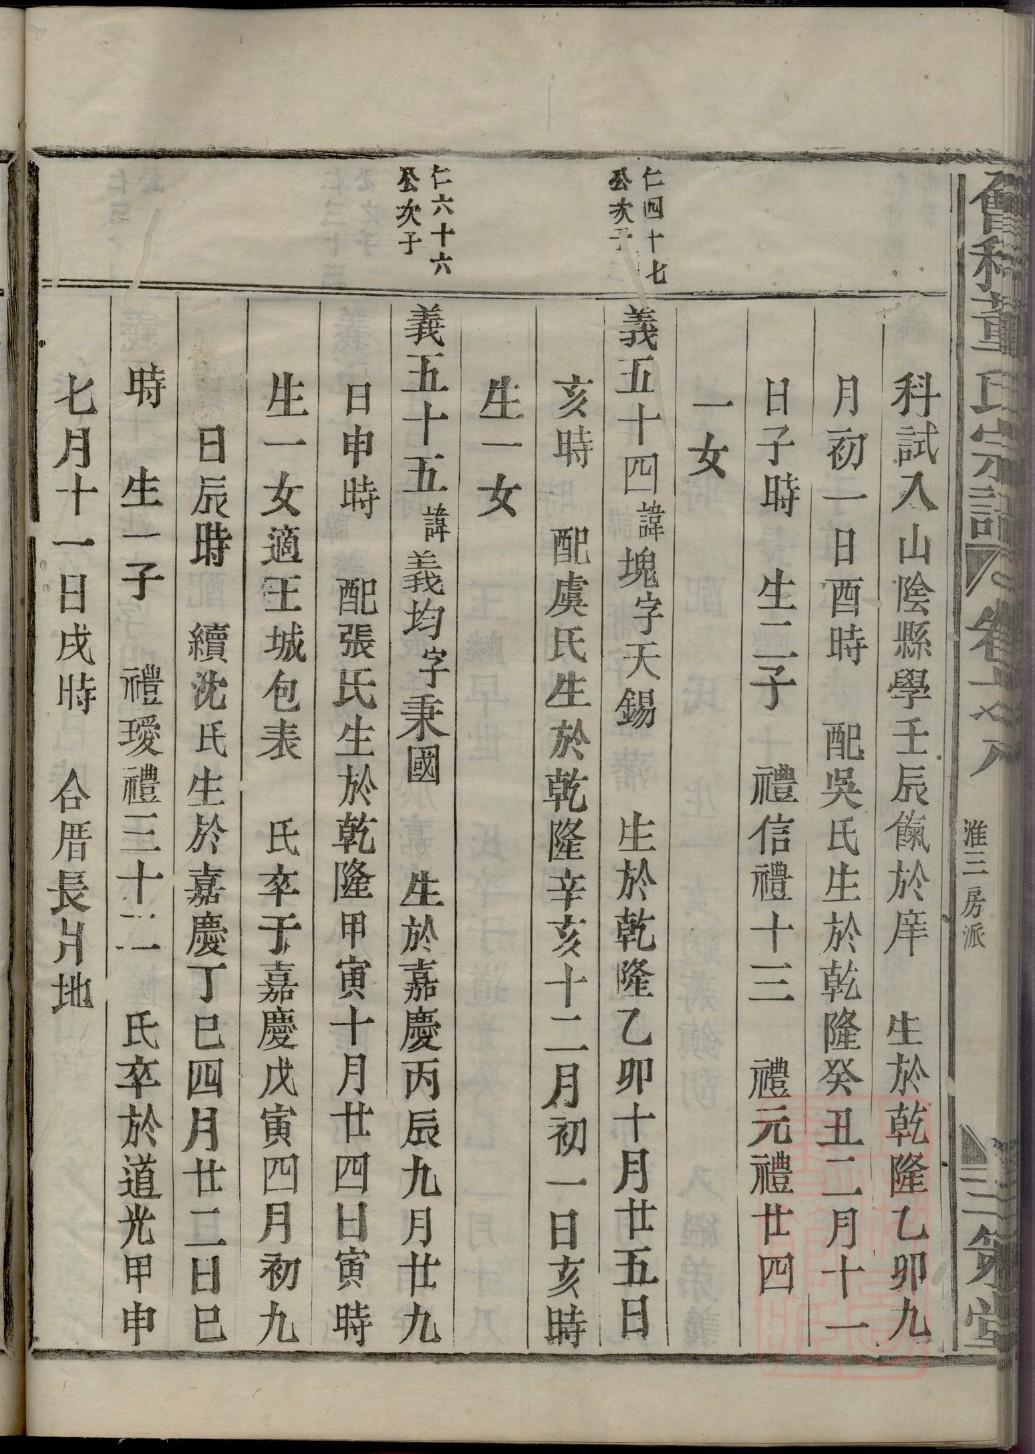 會稽董氏宗譜 卷之八 淮三房派 三策堂
科試入山陰縣學壬辰餼於庠 生於乾隆乙卯九
月初一日酉時 配吳氏生於乾隆癸丑二月十一
日子時 生二子 禮信禮十三 禮元禮廿四
一女
仁四十七
公次子
義五十四諱塊字天錫 生於乾隆乙卯十月廿五日
亥時 配虞氏生於乾隆辛亥十二月初一日亥時
生一女
仁六十六
公次子
義五十五諱義均字秉國 生於嘉慶丙辰九月廿九
日申時 配張氏生於乾隆甲寅十月廿四日寅時
生一女適王城包表 氏卒于嘉慶戊寅四月初九
日辰時 續沈氏生於嘉慶丁巳四月廿二日巳
時 生一子 禮璦禮三十二 氏卒於道光甲申
七月十一日戌時 合厝長爿地